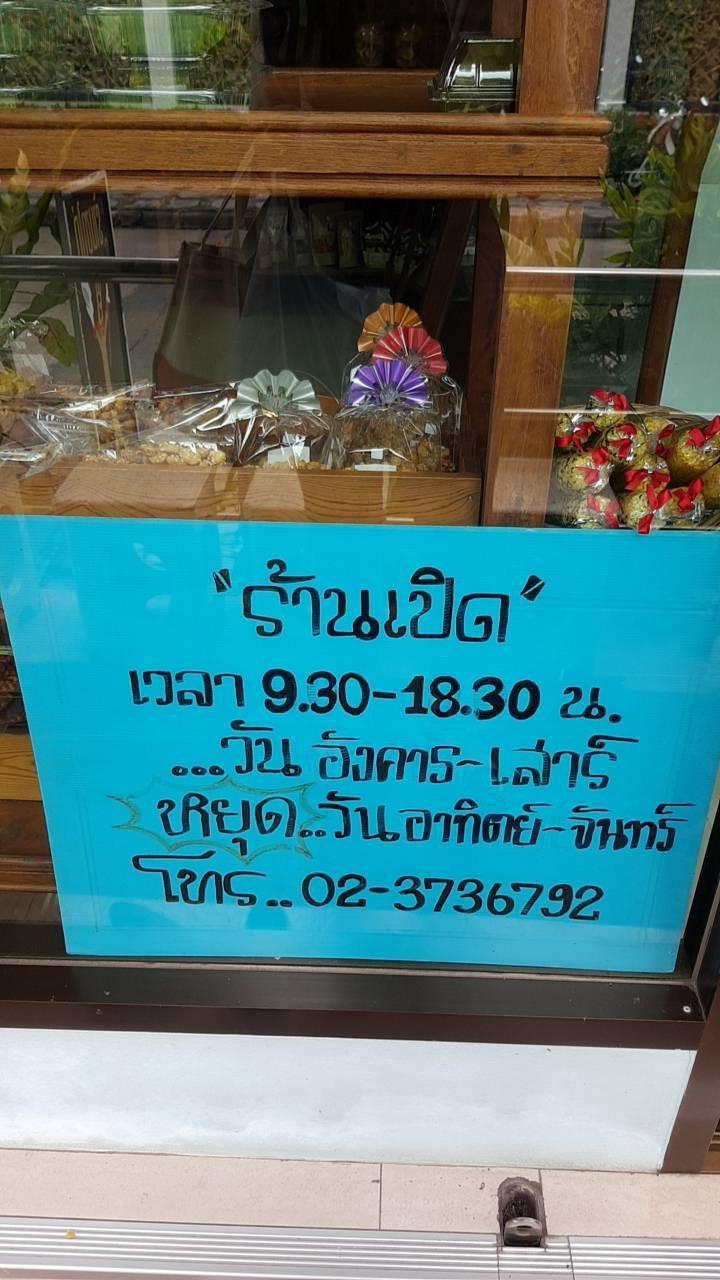 "ร้านเปิด"
เวลา 9.30-18.30 น.
...วัน อังคาร-เสาร์
หยุด..วันอาทิตย์-จันทร์
โทร..02-3736792